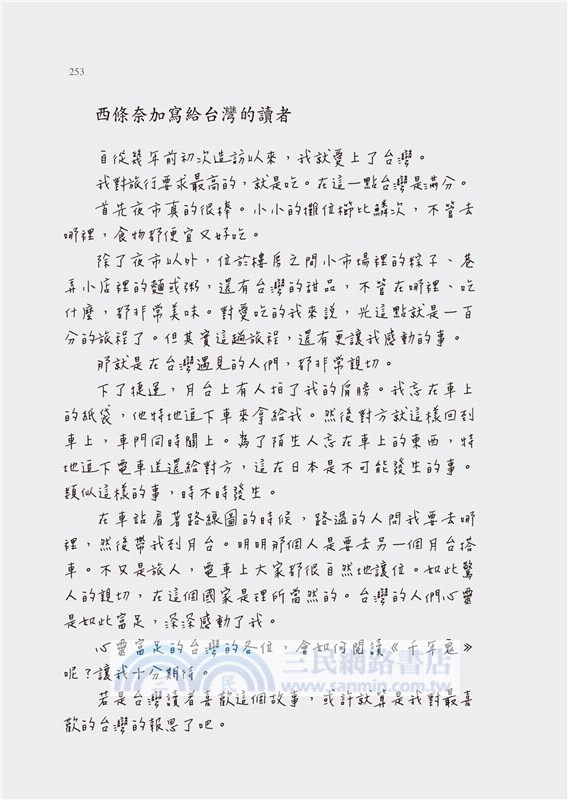 253
西條奈加寫給台灣的讀者
自從幾年前初次造訪以來，我就愛上了台灣。
我對旅行要求最高的，就是吃。在這一點台灣是滿分。
首先夜市真的很棒。小小的攤位櫛比鱗次，不管去
哪裡，食物都便宜又好吃。
除了夜市以外，位於樓房之間小市場裡的粽子、巷
弄小店裡的麵或粥，還有台灣的甜品，不管在哪裡、吃
什麼，都非常美味。對愛吃的我來說，光這點就是一百
分的旅程了。但其實這趟旅程，還有更讓我感動的事。
那就是在台灣遇見的人們，都非常親切。
下了捷運，月台上有人拍了我的肩膀。我忘在車上
的紙袋，他特地追下車來拿給我。然後對方就這樣回到
車上，車門同時關上。為了陌生人忘在車上的東西，特
地追下電車送還給對方，這在日本是不可能發生的事。
類似這樣的事，時不時發生。
在車站看著路線圖的時候，路過的人問我要去哪
裡，然後帶我到月台。明明那個人是要去另一個月台搭
車。不又是旅人，電車上大家都很自然地讓位。如此驚
人的親切，在這個國家是理所當然的。台灣的人們心靈
是如此富足，深深感動了我。
心靈富足的台灣的各位，會如何閱讀《千年鬼》
呢？讓我十分期待。
若是台灣讀者喜歡這個故事，或許就算是我對最喜
歡的台灣的報恩了吧。
三民網路書店
www.sanmin.com.tw